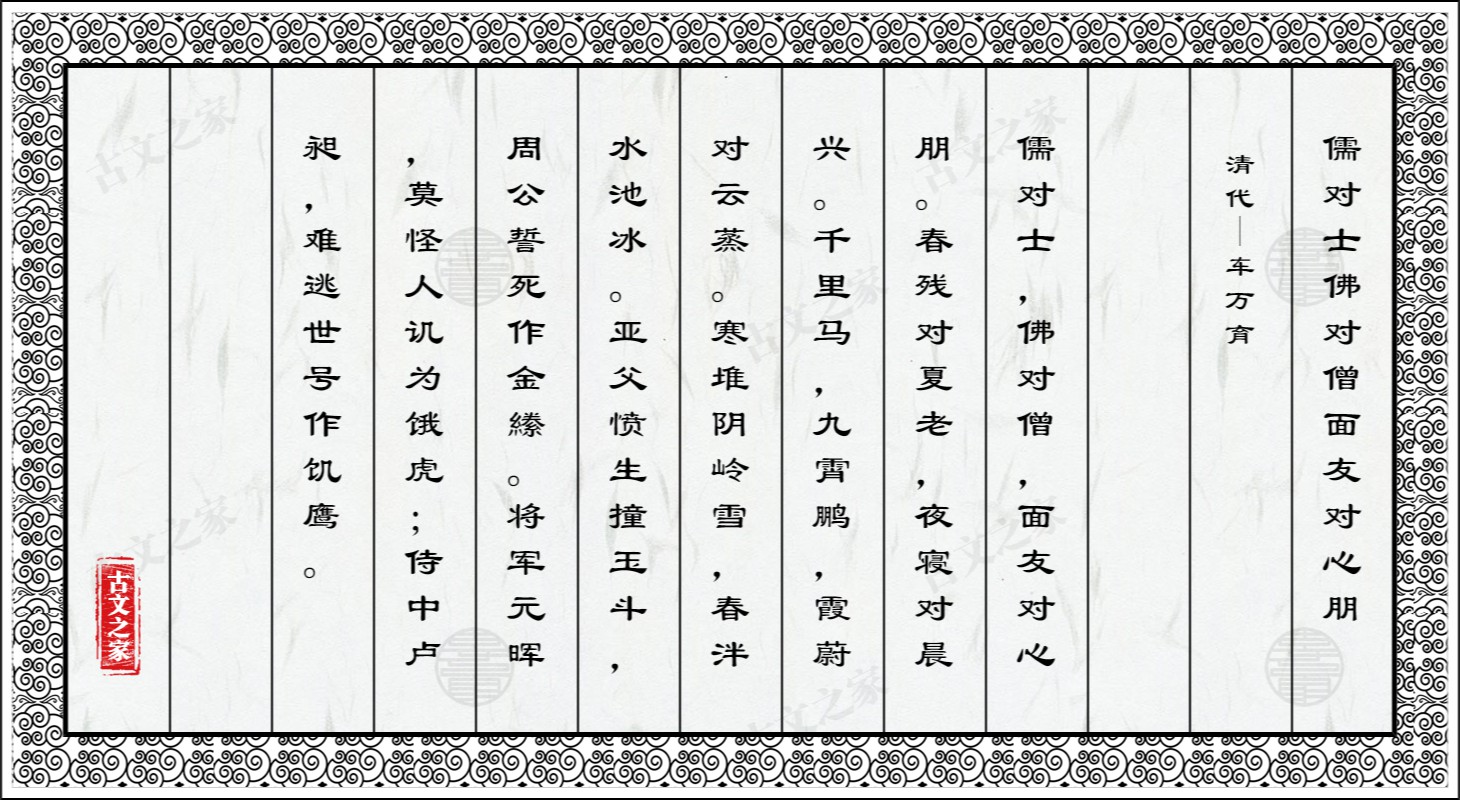 儒对士佛对僧面友对心朋
清代—车万育
儒对士，佛对僧，面友对心
朋。春残对夏老，夜寝对晨
兴。千里马，九霄鹏，霞蔚
对云蒸。寒堆阴岭雪，春泮
水池冰。亚父愤生撞玉斗，
周公誓死作金縢。将军元晖
，莫怪人讥为饿虎；侍中卢
昶，难逃世号作饥鹰。
古文之家